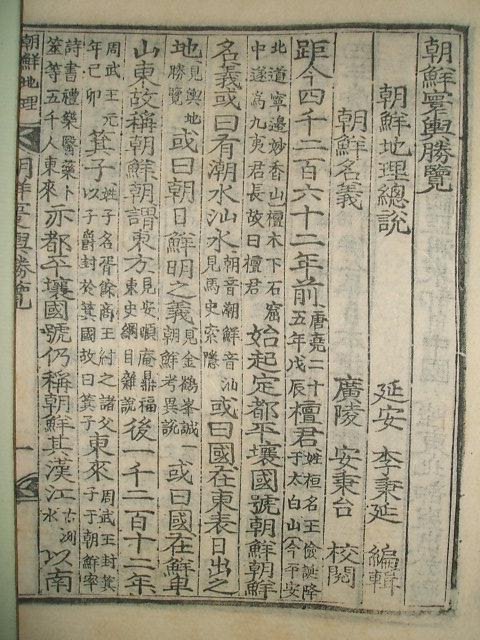 朝鮮寰輿勝覽
朝鮮地理總說 延安 李秉延 編輯
朝鮮名義 廣陵 安秉台 校閱
距今四千二百六十二年前唐堯二十五年戊辰檀君姓桓名王儉誕降于太白山今平安
北道寧邊妙香山檀木下石窟中遂爲九夷君長故曰檀君始起定都平壤國號朝鮮朝鮮
名義或曰有潮水汕水朝音潮鮮音汕見馬史索隱或曰國在東表日出之
地見輿地勝覽或曰朝日鮮明之義見金鶴峯誠一朝鮮考異說或曰國在鮮卑
山東故稱朝鮮朝謂東方見安順庵鼎福東史綱目雜說後一千二百十二年
周武王元年己卯箕子姓子名胥餘商王紂之諸父以子爵封於箕國故曰箕子東來周武王封箕子于朝鮮率
詩書禮樂醫藥卜筮等五千人東來亦都平壤國號仍稱朝鮮其漢江古洌水以南
朝鮮地理 朝鮮寰輿勝覽 一